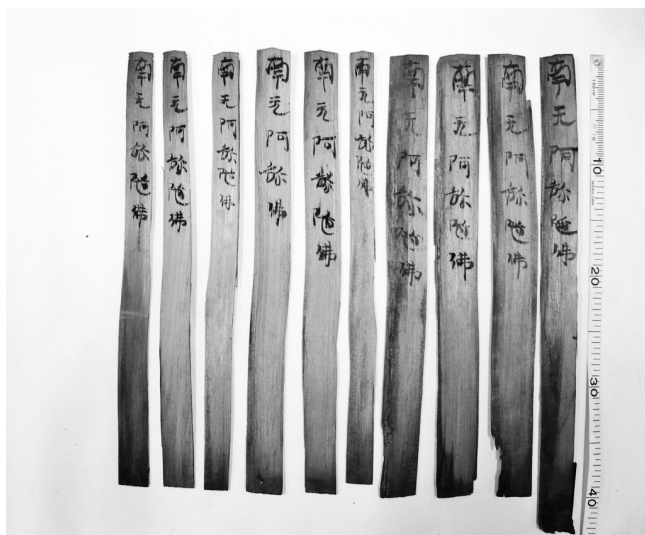 南无阿弥陀佛
南无阿弥陀佛
南无阿弥陀佛
南无阿弥陀佛
南无阿弥陀佛
南无阿弥陀佛
南无阿弥佛
南无阿弥陀佛
南无阿弥陀佛
南无阿弥陀佛
10
20
30
40